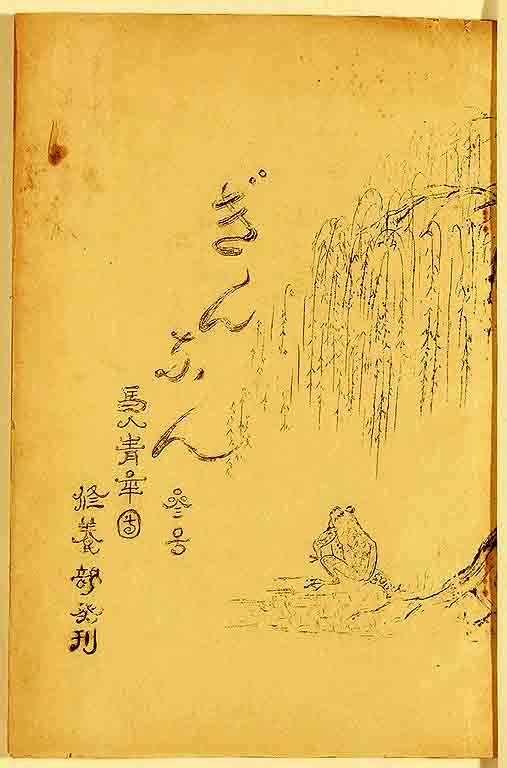 ぎんなん
参号
馬入青年団
修養部発刊